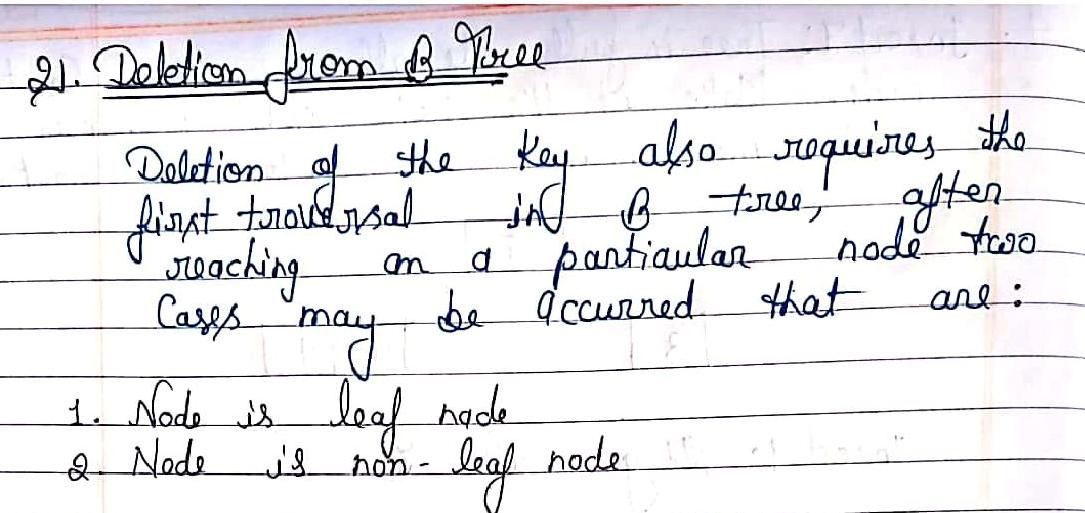 21. Deletion from B Tree
Deletion of the key also requires the
first traversal in B tree, after
reaching on a particular node two
Cases may be occurred that are:
1. Node is leaf node
2. Node is non-leaf node